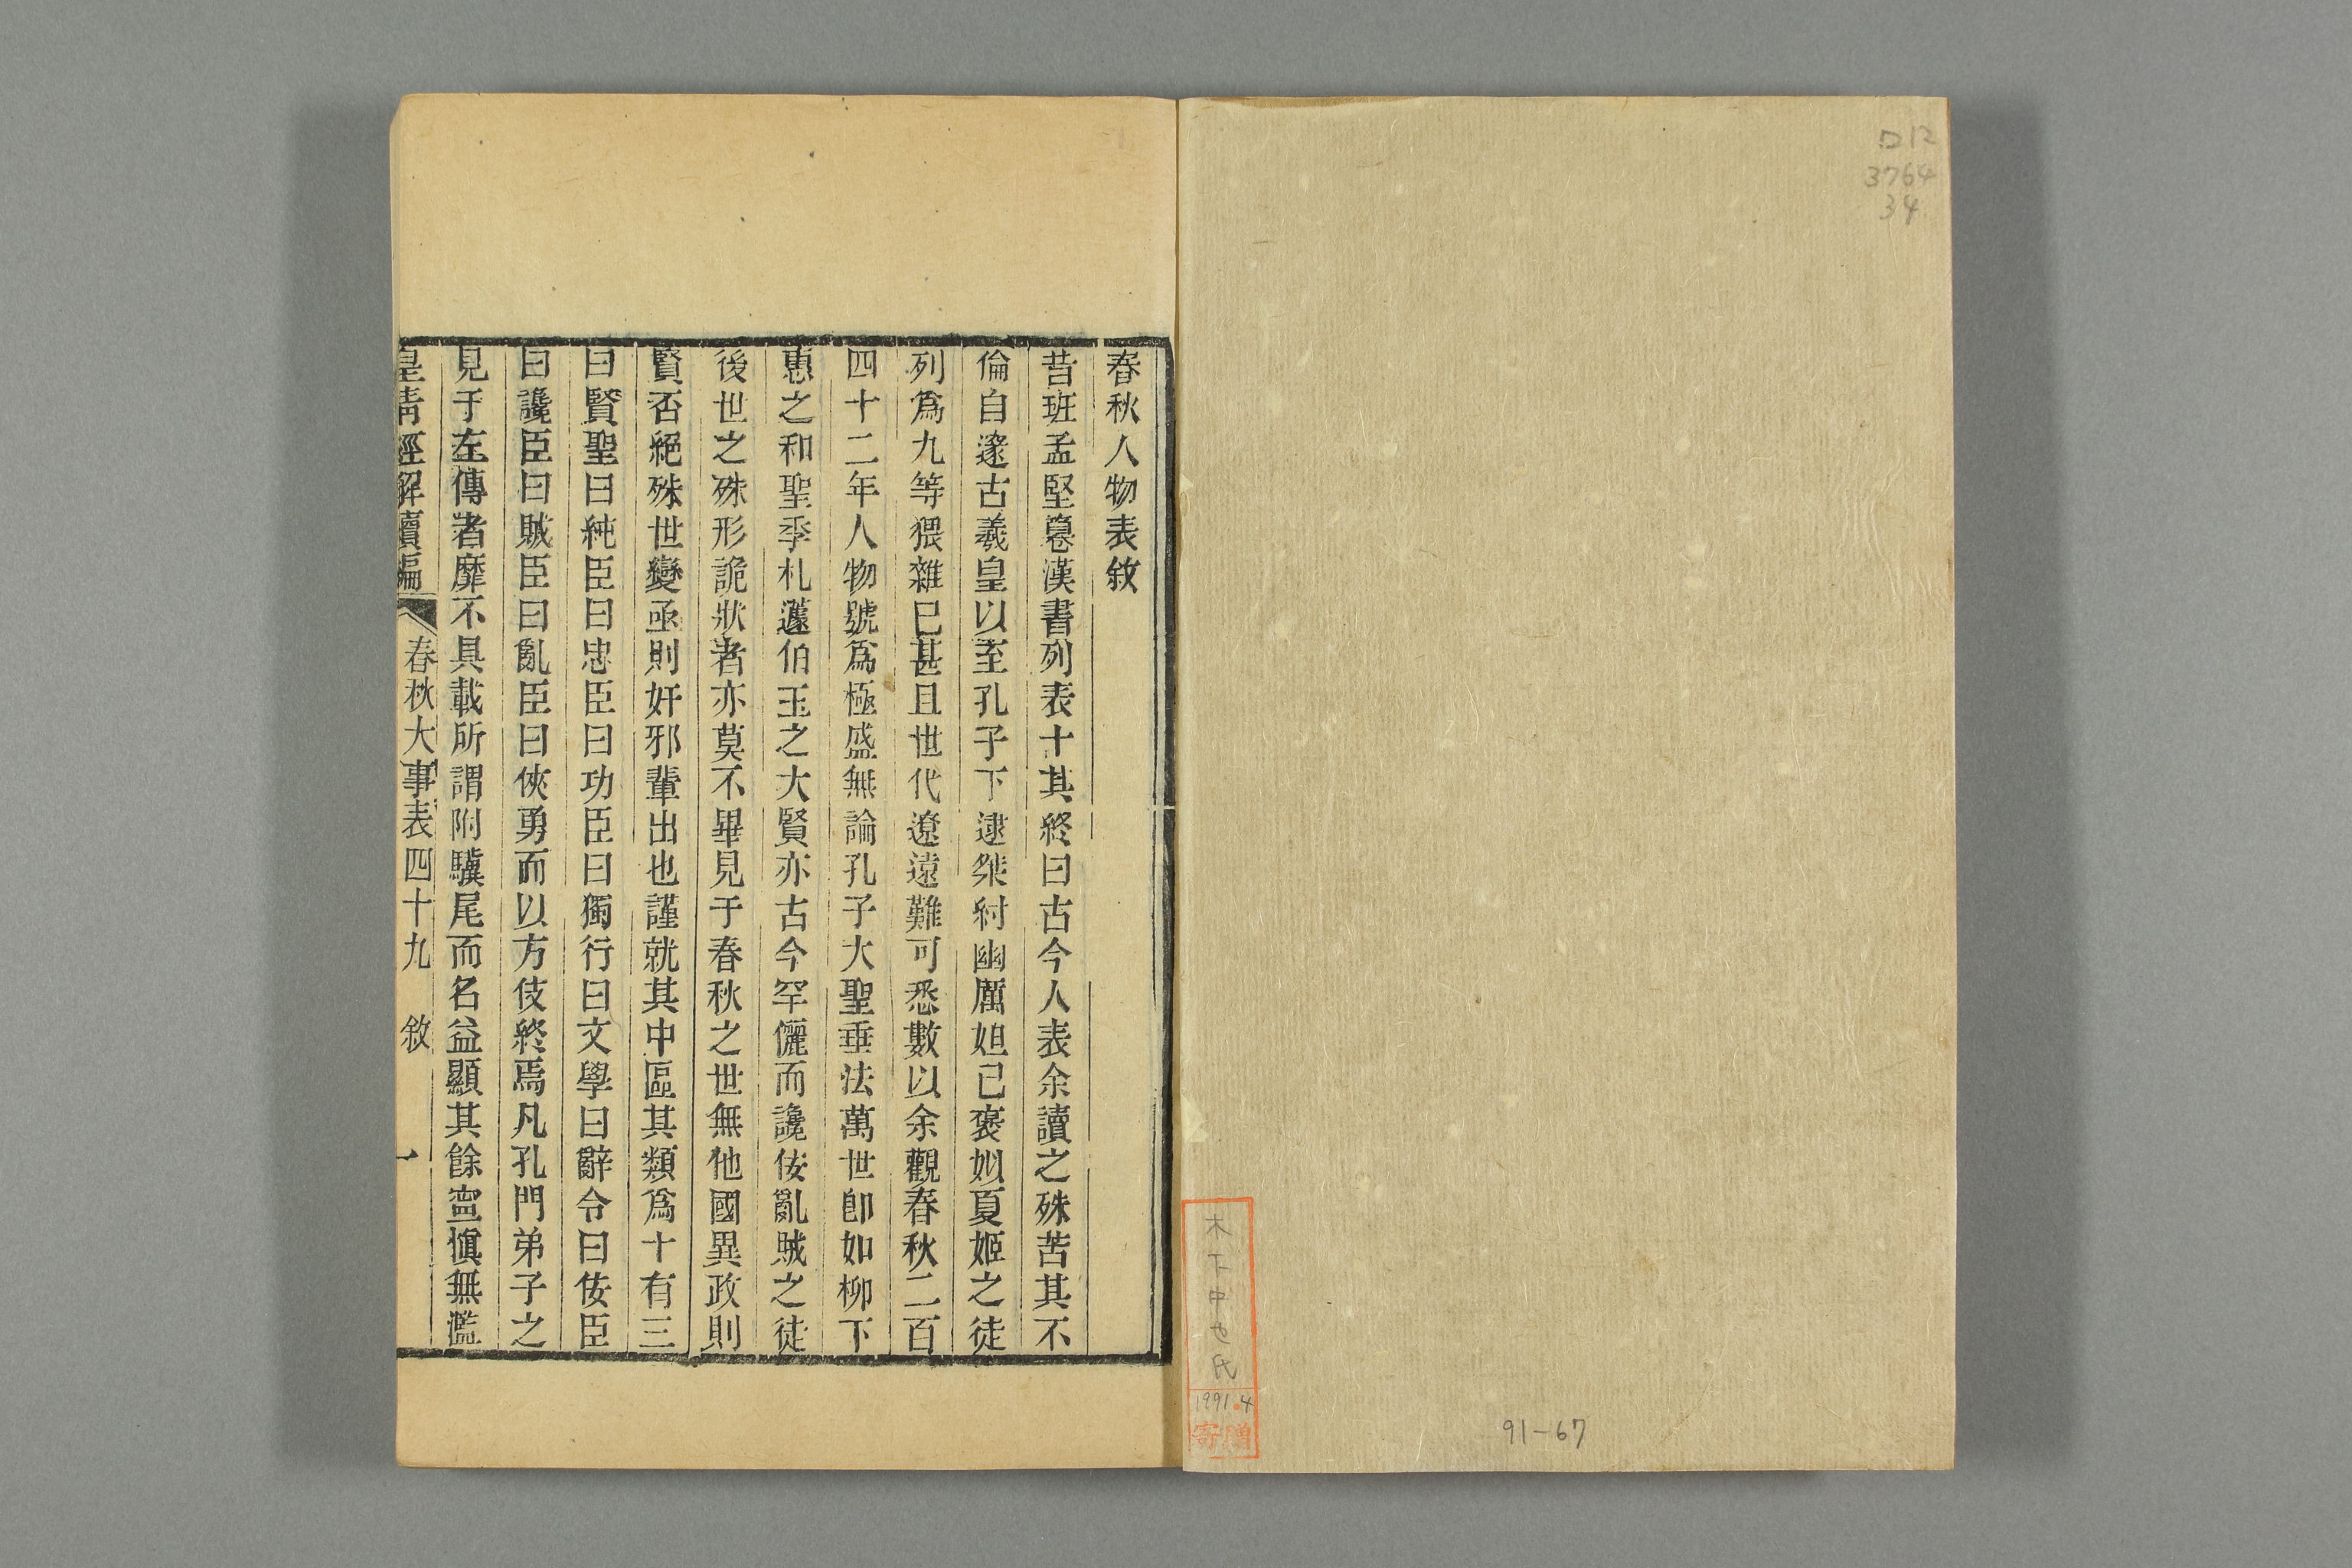 ロ12
3764
34
木下中也氏
1991.4
寄贈
91-67
春秋人物表敘
昔班孟堅簒漢書列表十其終曰古今人表余讀之殊苦其不
倫自邃古羲皇以至孔子下逮桀紂幽厲妲己褒姒夏姬之徒
列爲九等猥雜已甚且世代遼遠難可悉數以余觀春秋二百
四十二年人物號爲極盛無論孔子大聖垂法萬世卽如柳下
惠之和聖季札蘧伯玉之大賢亦古今罕儷而讒佞亂賊之徒
後世之殊形詭狀者亦莫不畢見于春秋之世無他國異政則
賢否絕殊世變亟則奸邪輩出也謹就其中區其類爲十有三
曰賢聖曰純臣曰忠臣曰功臣曰獨行曰文學曰辭令曰佞臣
曰讒臣曰賊臣曰亂臣曰俠勇而以方伎終焉凡孔門弟子之
見于左傳者靡不具載所謂附驥尾而名益顯其餘寧愼無濫
皇淸經解續編 春秋大事表四十九 敘 一